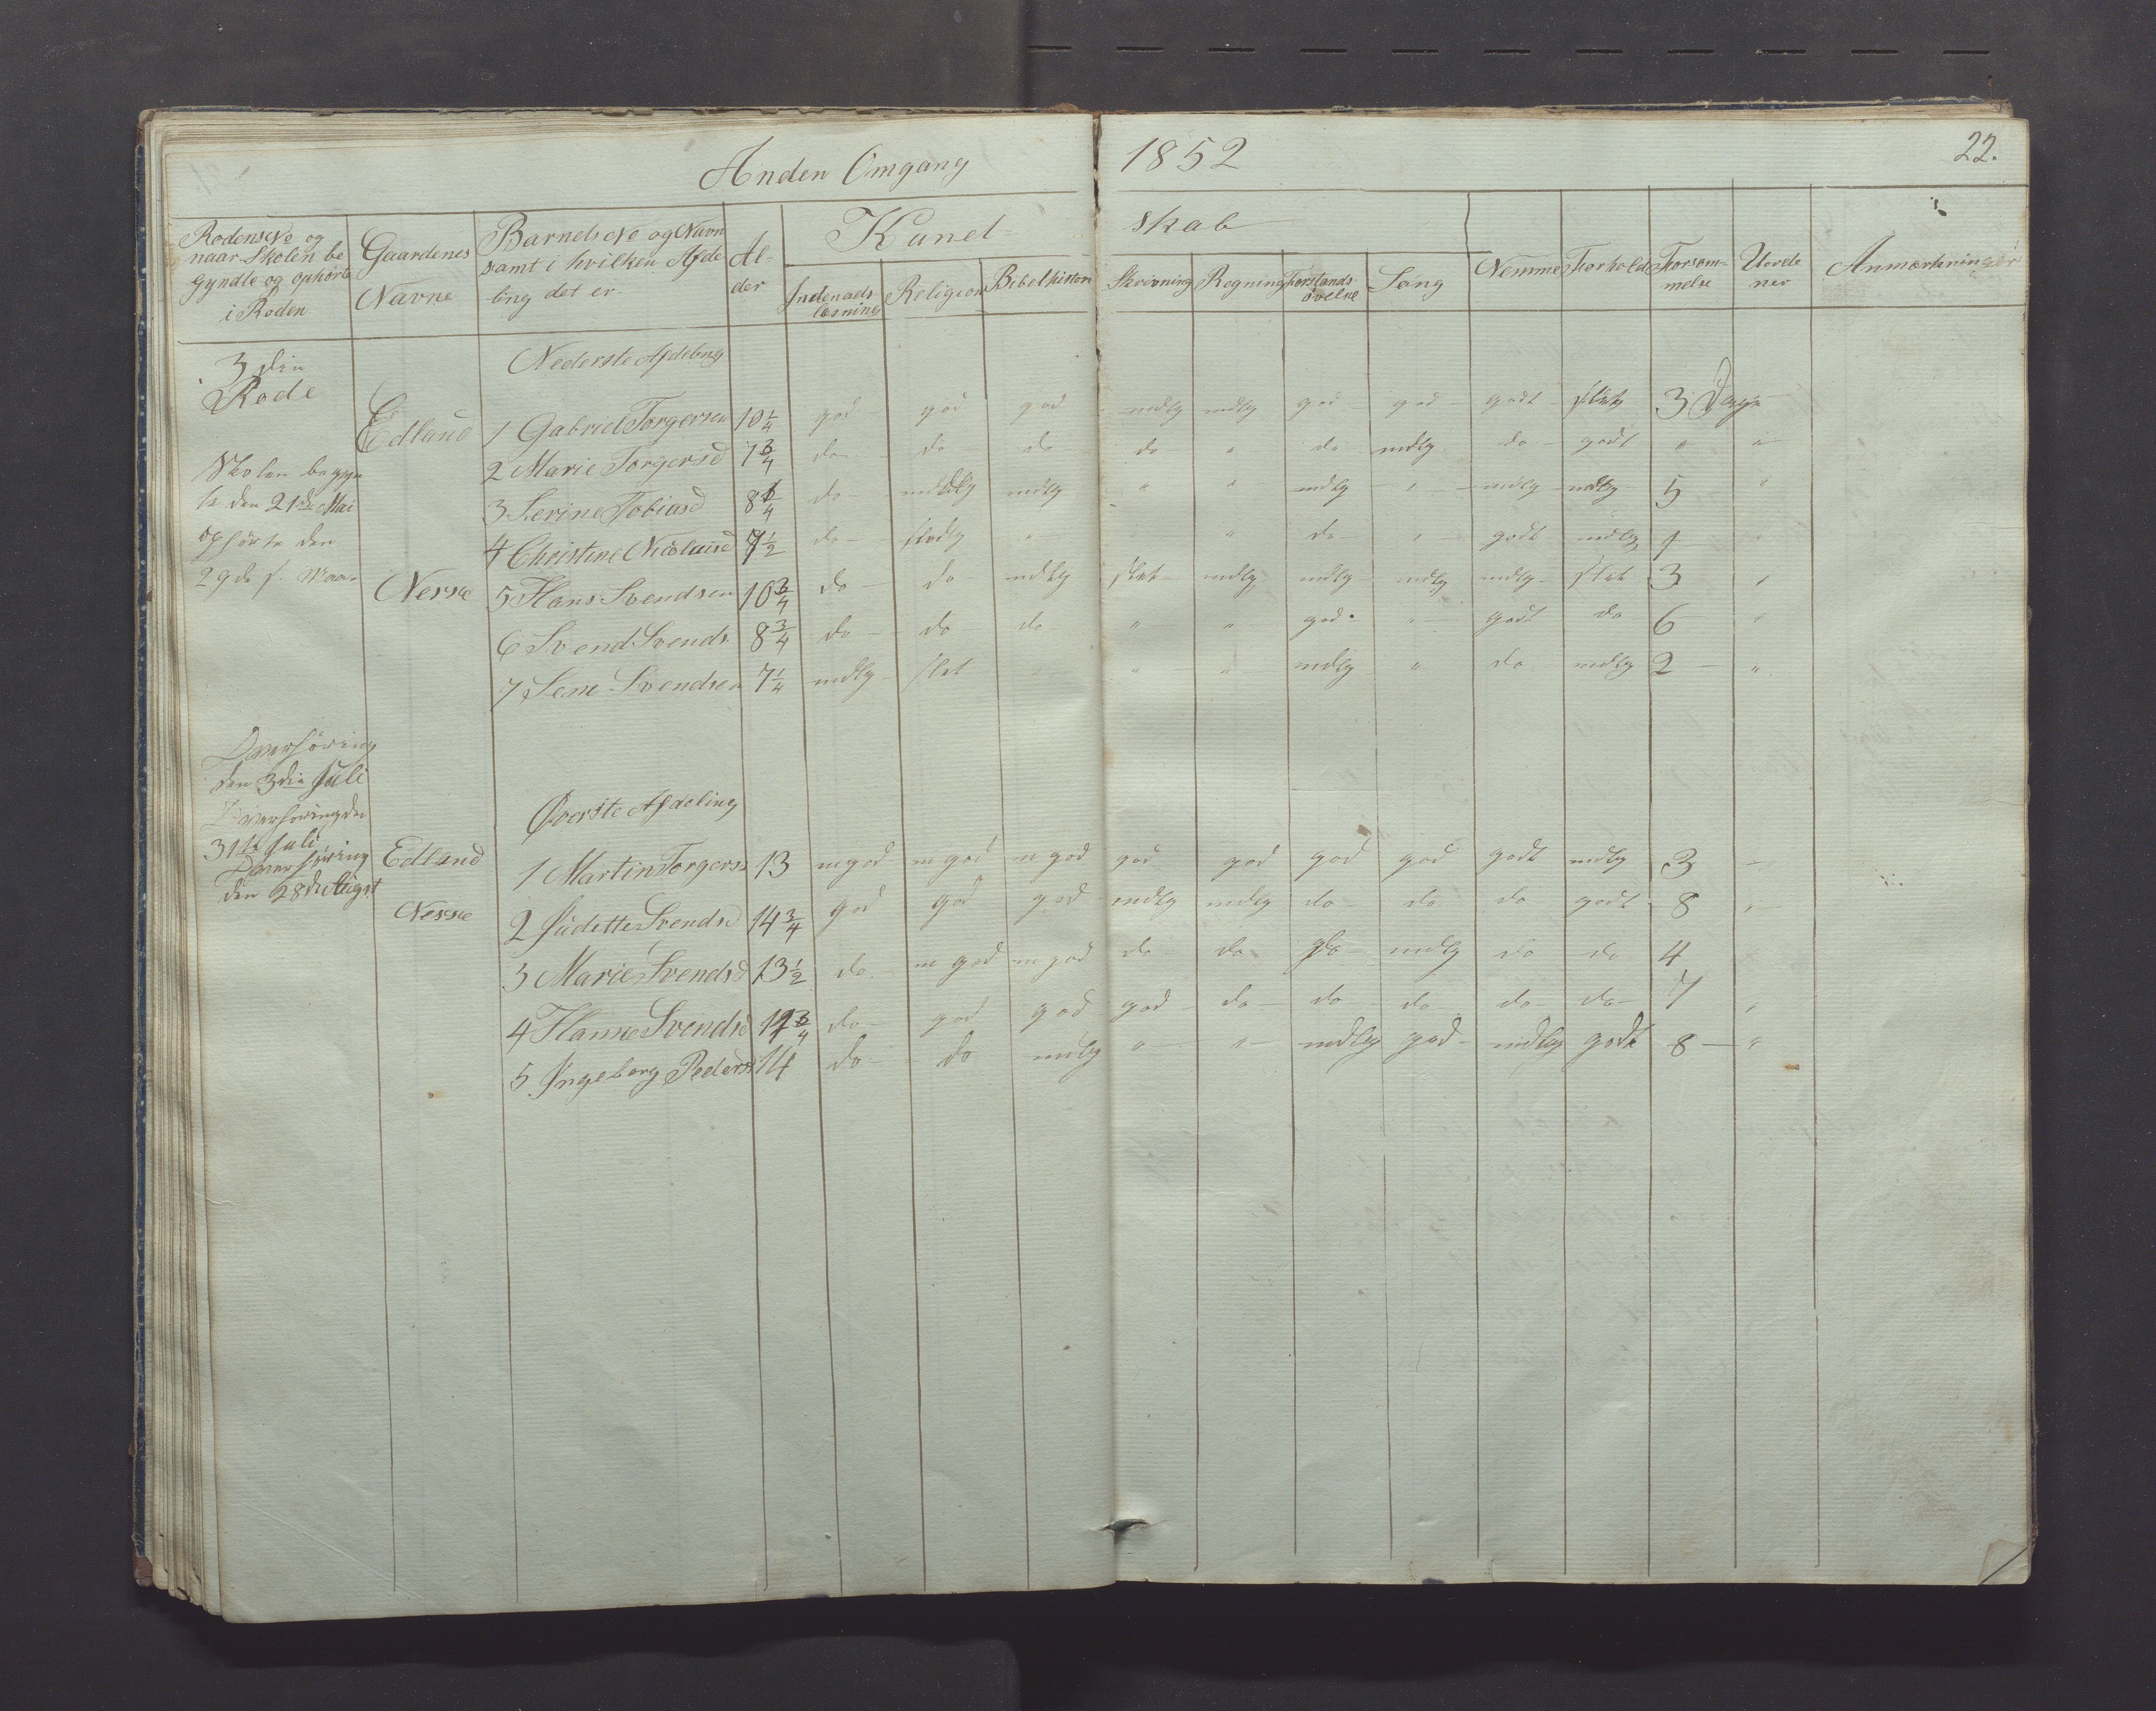 Anden Omgang 1852 22.
Rodens No og
naar Skolen be
gyndte og ophørte
i Roden
Gaardenes
Navne
Barnets No og Navn
samt i hvilken Afde
ling det er
Al-
der
Kund-
skab
Indenads
læsning
Religion
Bibelhistori
Skrivning
Regning
Forstands
øvelse
Sang
Nemme
Forhold
Forsøm-
melse
Anmærkninger
3 die
Rode
Nederste Afdeling
Edland 1 Gabriel Torgersen 10 1/4 god god god mdlg mdlg god god godt slet 3 Dage
2 Marie Torgersd 7 3/4 do do do do " do mdlg do godt " "
3 Serine Tobiasd 8 do mdlg mdlg " " mdlg " mdlg mdlg 5 "
4 Christine Nicolaisd 7 1/2 do " " do " godt mdlg 1
5 Hans Svendsen 10 3/4 do do mdlg slet mdlg mdlg mdlg mdlg slet 3 "
Nesse
6 Svend Svends 8 3/4 do do do " " god " godt do 6 "
7 Svendsen 7 1/4 mdlg slet " " mdlg " do mdlg 2 "
Skolen begyn
te den 21de Mai
ophørte den
29de s. Maan
Overhøring
den 3die Juli
Overhøring den
31te Juli
Overhøring
den 28de August
Øverste Afdeling
Edland 1 Martin Torgerss 13 m god m god m god god god god god godt mdlg 3
Nesse 2 Svendsd 14 3/4 god god god mdlg mdlg do do do godt 8 "
3 Marie Svendsd 13 1/2 do m god m god do do do mdlg do do 4
4 Hanne Svendsd do god god god do do do do do 7 "
5 Ingeborg Peders 14 do do mdlg " " mdlg god mdlg godt 8 "